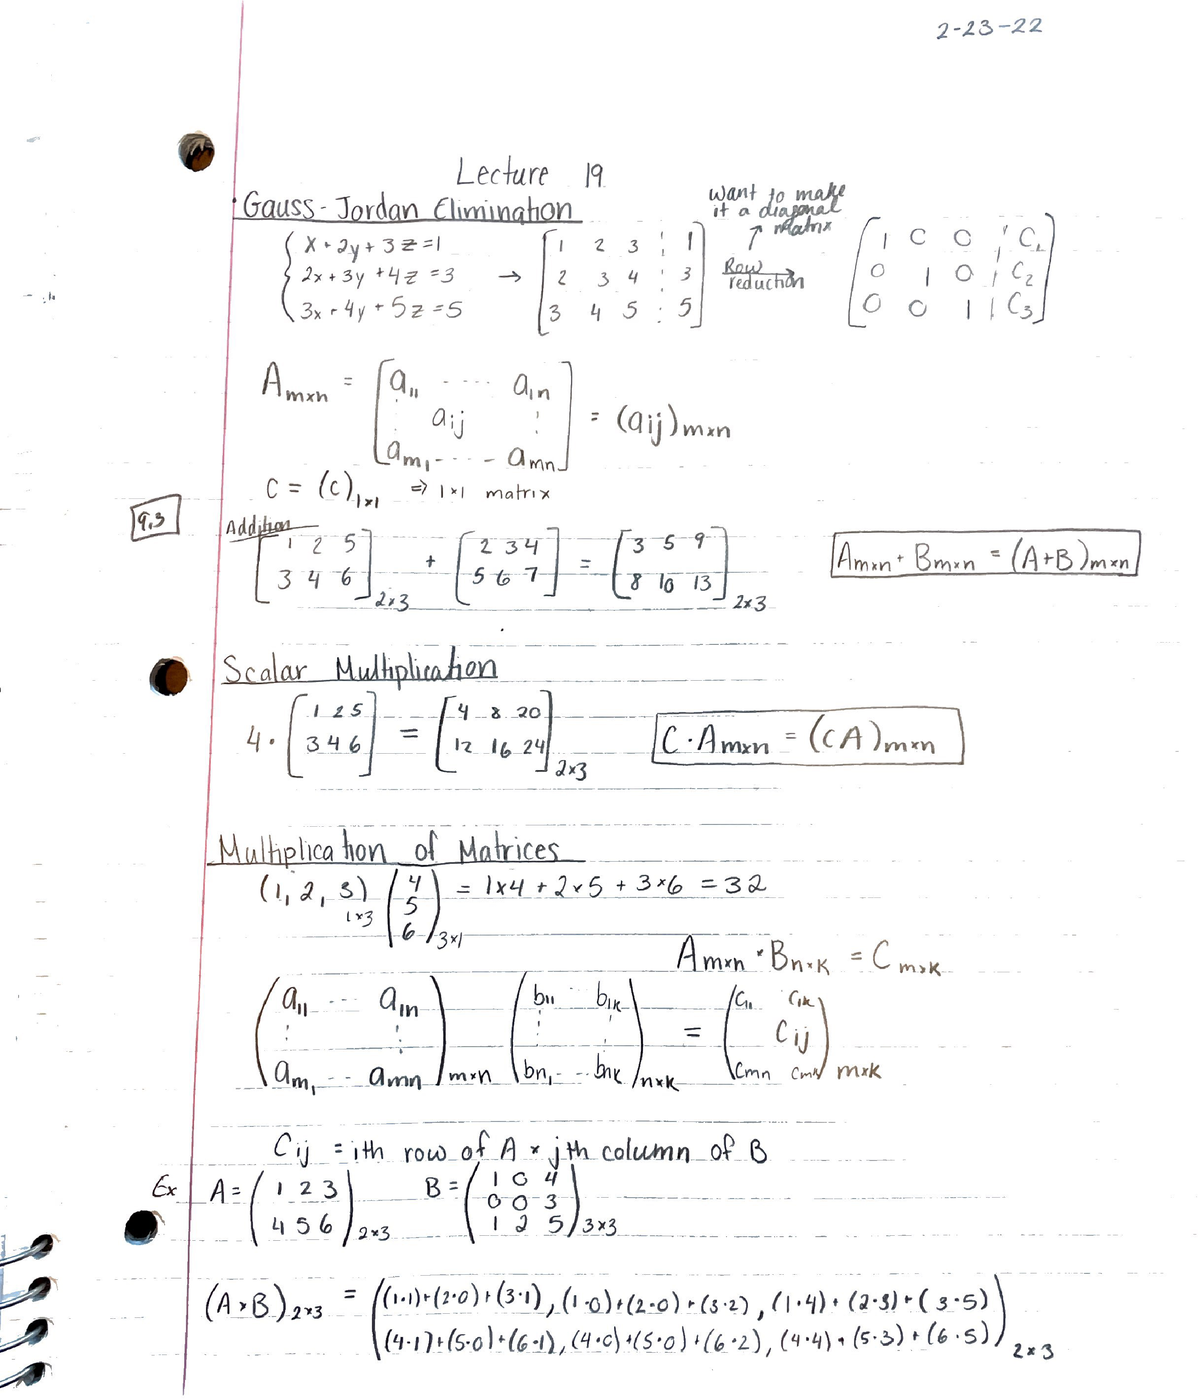 2-23-22
Lecture 19
Gauss-Jordan Elimination
want to make
it a diagonal
↑ matrix
{ x + 2y + 3z = 1
2x + 3y + 4z = 3
3x + 4y + 5z = 5
→
[ 1 2 3 ¦ 1
2 3 4 ¦ 3
3 4 5 ¦ 5 ]
Row →
reduction
[ 1 0 0 ¦ C₁
0 1 0 ¦ C₂
0 0 1 ¦ C₃ ]
Amxn = [ a₁₁ ---- a₁n
⋮ aij ⋮
am₁ ---- amn ] = (aij)mxn
C = (c)₁ₓ₁ ⇒ 1x1 matrix
9.3
Addition
[ 1 2 5
3 4 6 ]2x3 + [ 2 3 4
5 6 7 ] = [ 3 5 9
8 10 13 ]2x3
Amxn + Bmxn = (A+B)mxn
Scalar Multiplication
4 · [ 1 2 5
3 4 6 ] = [ 4 8 20
12 16 24 ]2x3
C · Amxn = (cA)mxn
Multiplication of Matrices
(1, 2, 3)1x3 ( 4
5
6 )3x1 = 1x4 + 2x5 + 3x6 = 32
Amxn * Bnxk = Cmxk
( a₁₁ --- a₁n
⋮ ⋮
am₁ --- amn )mxn ( b₁₁ -- b₁k
⋮ ⋮
bn₁ --- bnk )nxk = ( C₁₁ C₁k
Cij
Cmn Cmk ) mxk
Cij = ith row of A x jth column of B
Ex A = ( 1 2 3
4 5 6 )2x3
B = ( 1 0 4
0 0 3
1 2 5 )3x3
(A*B)2x3 = ( (1·1)+(2·0)+(3·1), (1·0)+(2·0)+(3·2), (1·4)+(2·3)+(3·5)
(4·1)+(5·0)+(6·1), (4·0)+(5·0)+(6·2), (4·4)+(5·3)+(6·5) )2x3